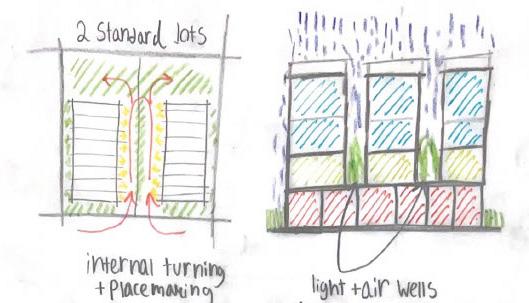 2 Standard lots
internal turning
+ placemaking
light + air wells